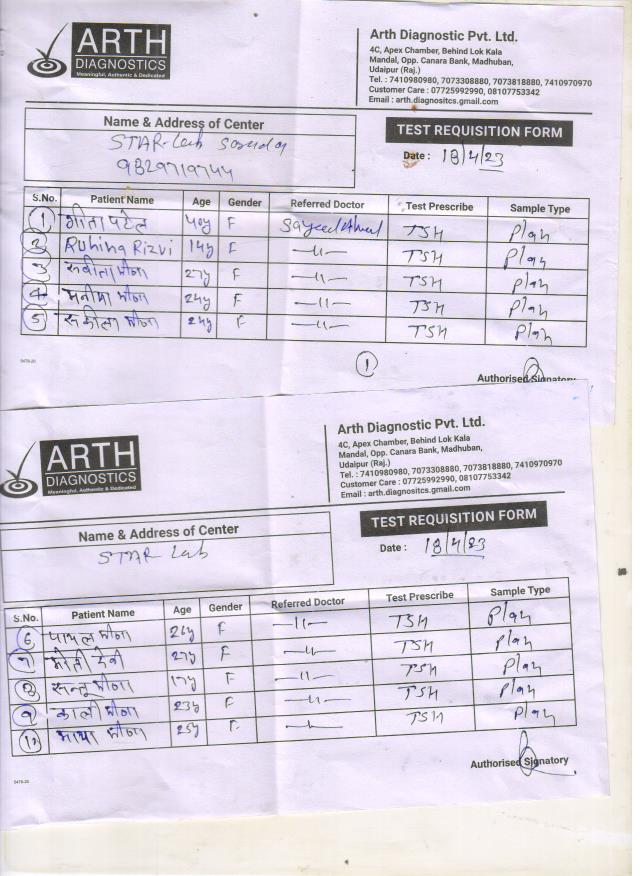 ARTH
DIAGNOSTICS
Meaningful, Authentic & Dedicated
Arth Diagnostic Pvt. Ltd.
4C, Apex Chamber, Behind Lok Kala
Mandal, Opp. Canara Bank, Madhuban,
Udaipur (Raj.)
Tel. : 7410980980, 7073308880, 7073818880, 7410970970
Customer Care : 07725992990, 08107753342
Email : arth.diagnositcs.gmail.com
Name & Address of Center
STAR Lab
9829719744
TEST REQUISITION FORM
Date : 18/4/23
S.No. Patient Name Age Gender Referred Doctor Test Prescribe Sample Type
1 गीता पटेल 40y F TSH Plan
2 Ruhina Rizvi 14y F -11- TSH Plan
3 मीना 27y F -11- TSH Plan
4 मीना 24y F -11- TSH Plan
5 मीना 24y F -11- TSH Plan
1
Authorised Signatory
5478-20
ARTH
DIAGNOSTICS
Meaningful, Authentic & Dedicated
Arth Diagnostic Pvt. Ltd.
4C, Apex Chamber, Behind Lok Kala
Mandal, Opp. Canara Bank, Madhuban,
Udaipur (Raj.)
Tel. : 7410980980, 7073308880, 7073818880, 7410970970
Customer Care : 07725992990, 08107753342
Email : arth.diagnositcs.gmail.com
Name & Address of Center
STAR Lab
TEST REQUISITION FORM
Date : 18/4/23
S.No. Patient Name Age Gender Referred Doctor Test Prescribe Sample Type
6 पायल मीना 26y F -11- TSH Plan
7 मोती देवी 27y F -11- TSH Plan
8 मीना 17y F -11- TSH Plan
9 काली मीना 23y F -11- TSH Plan
10 माया मीना 25y F -11- TSH Plan
Authorised Signatory
5478-20